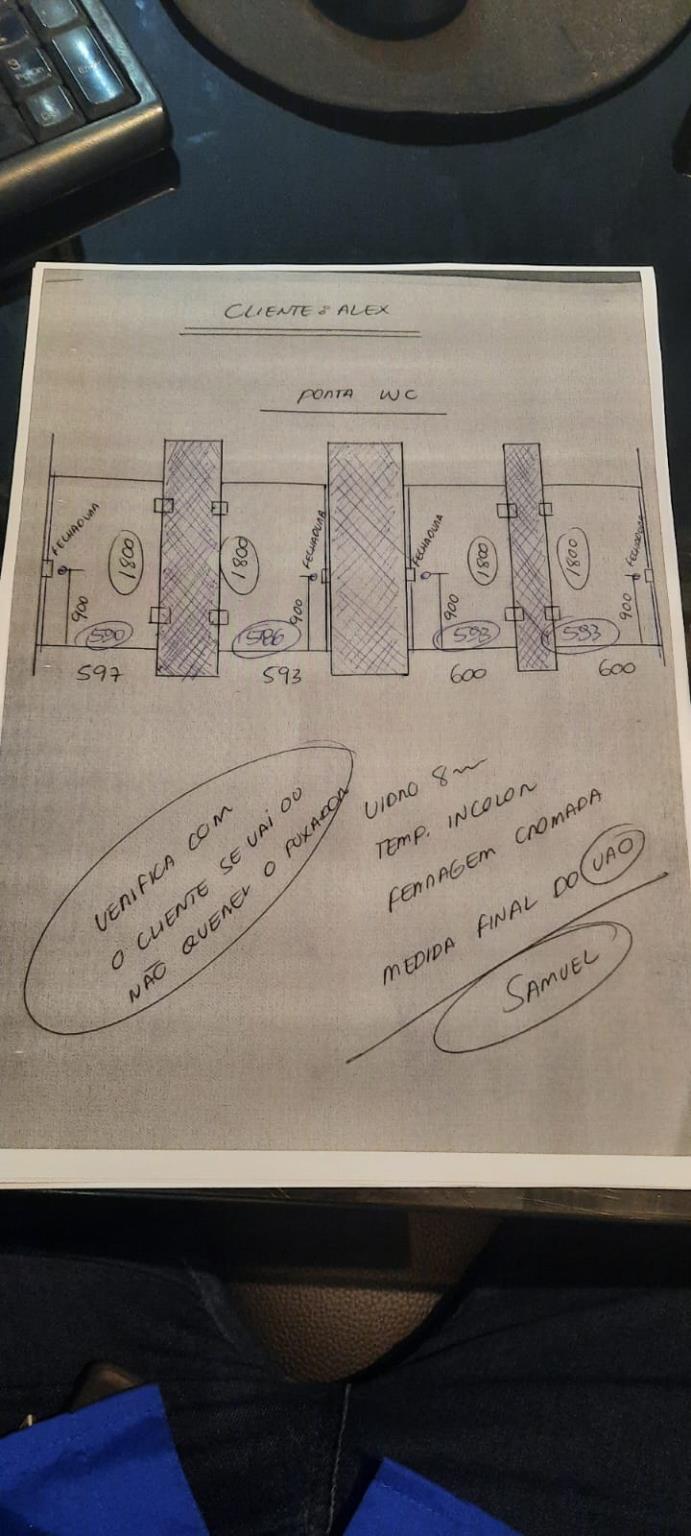 CLIENTE: ALEX
PORTA WC
FECHADURA
1800
1800
FECHADURA
FECHADURA
1800
1800
FECHADURA
900
900
900
900
590
586
593
593
597
593
600
600
VERIFICA COM
O CLIENTE SE VAI OU
NÃO QUERER O PUXADOR
VIDRO 8
TEMP. INCOLOR
FERRAGEM CROMADA
MEDIDA FINAL DO VAO
SAMUEL